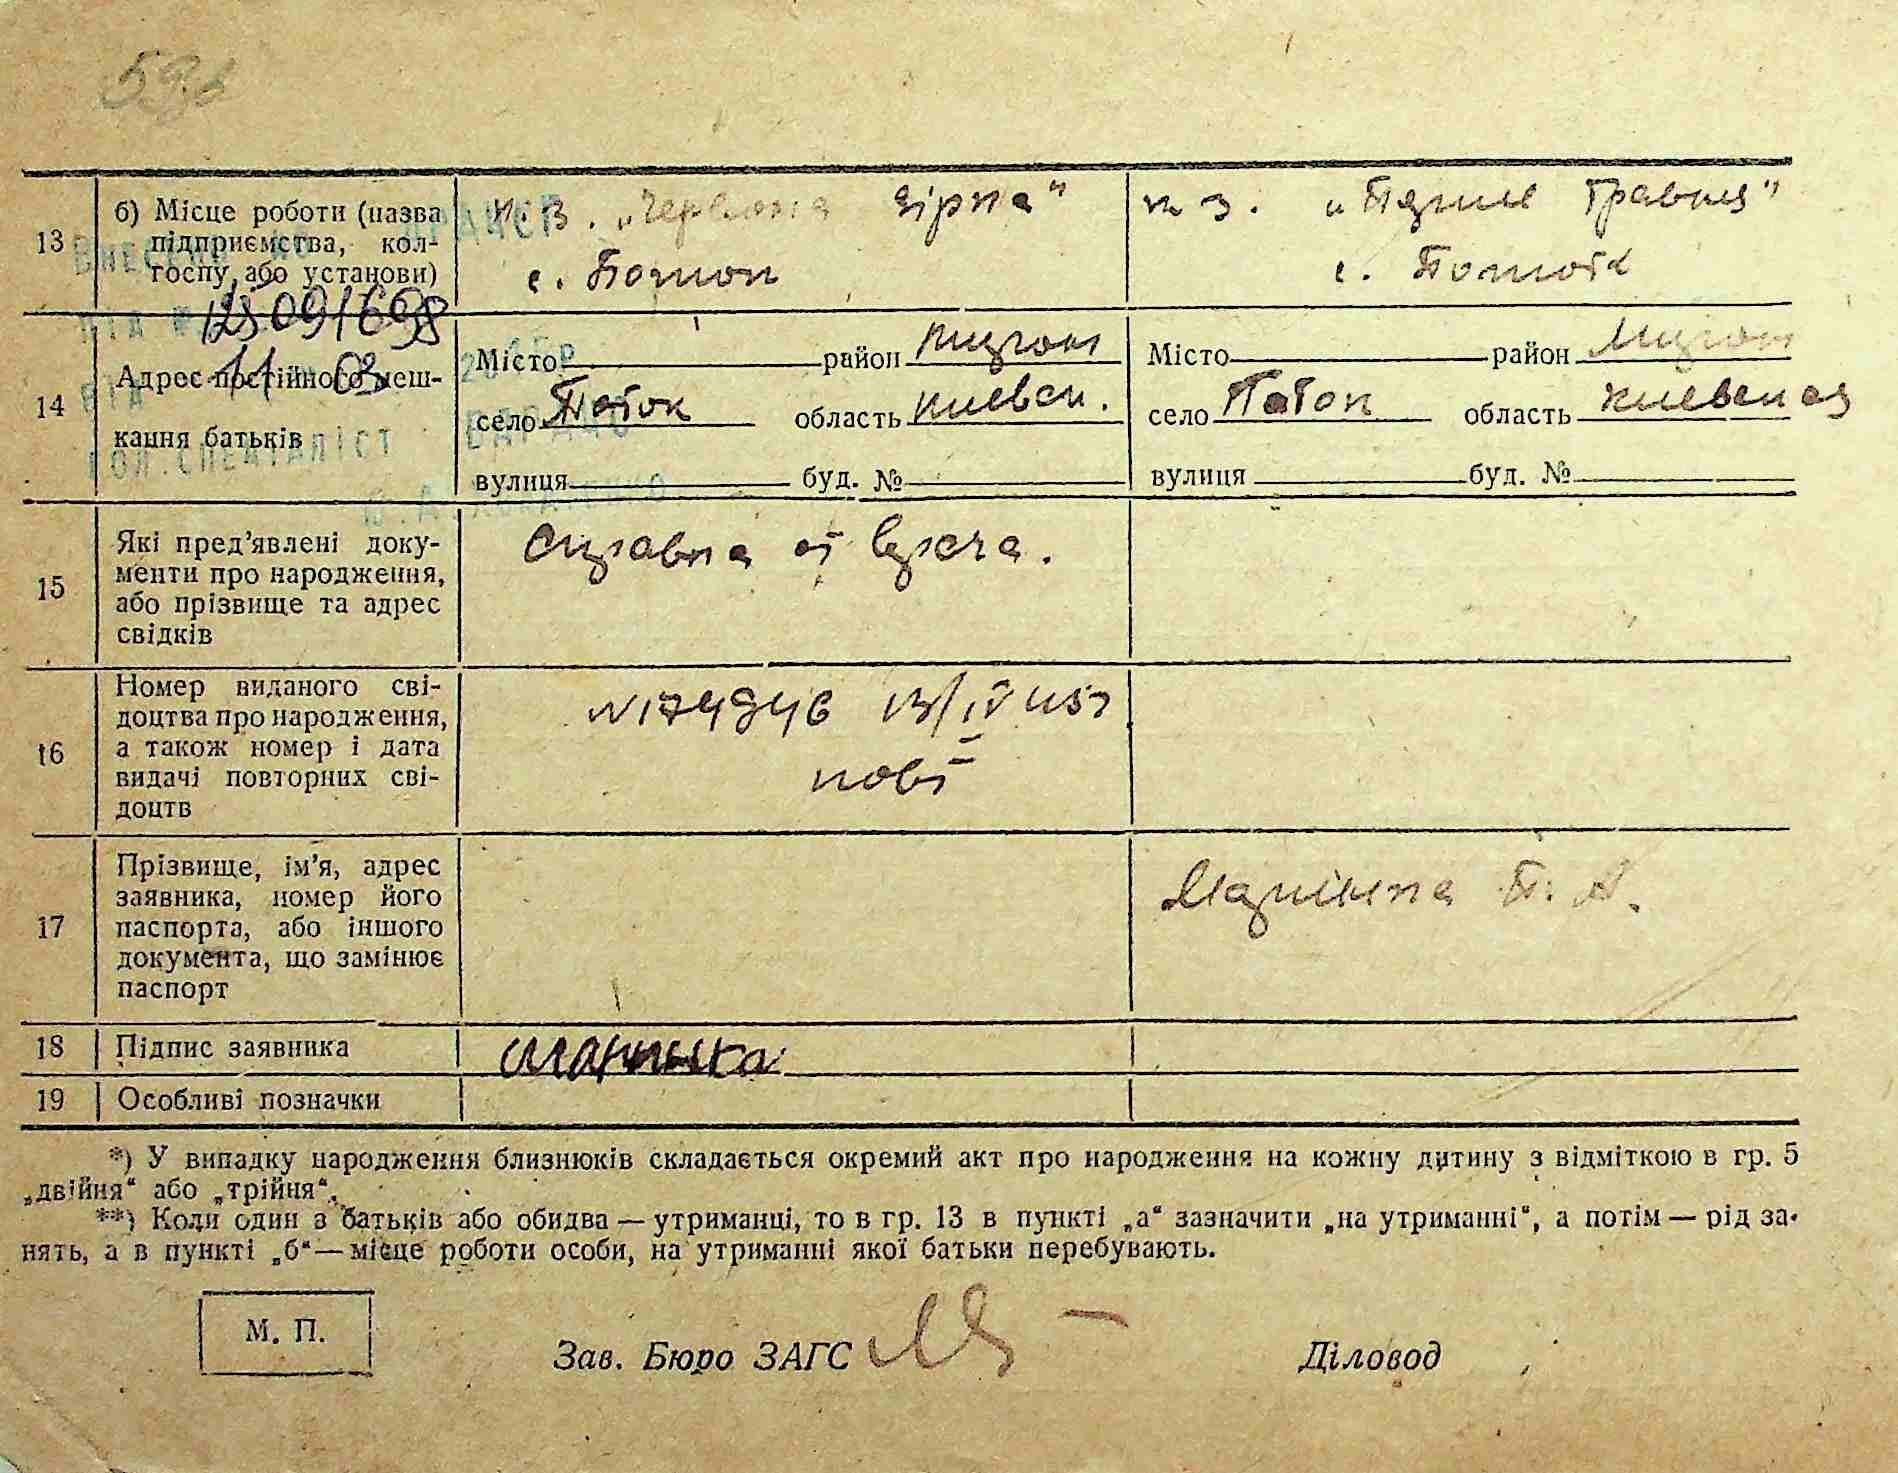 13 б) Місце роботи (назва підприємства, кол-
госпу, або установи)
„Червона зірка“
с. Поток
к з. „Перше Травня“
с. Потока
ВНЕСЕНО ДО ДРАЦСГ
125091698
11 03
ГОЛ.СПЕЦІАЛІСТ ВДРАЦС
14 Адрес постійного меш-
кання батьків
Місто район
село Поток область киевск.
вулиця буд. №
Місто район
село Поток область киевская
вулиця буд. №
15 Які пред’явлені доку-
менти про народження,
або прізвище та адрес
свідків
Справка от врача.
16 Номер виданого сві-
доцтва про народження,
а також номер і дата
видачі повторних сві-
доцтв
N174946
17 Прізвище, ім’я, адрес
заявника, номер його
паспорта, або іншого
документа, що замінює
паспорт
П. А.
18 Підпис заявника
19 Особливі позначки
*) У випадку народження близнюків складається окремий акт про народження на кожну дитину з відміткою в гр. 5
„двійня“ або „трійня“.
**) Коли один з батьків або обидва — утриманці, то в гр. 13 в пункті „а“ зазначити „на утриманні“, а потім — рід за-
нять, а в пункті „б“ — місце роботи особи, на утриманні якої батьки перебувають.
М. П.
Зав. Бюро ЗАГС
Діловод